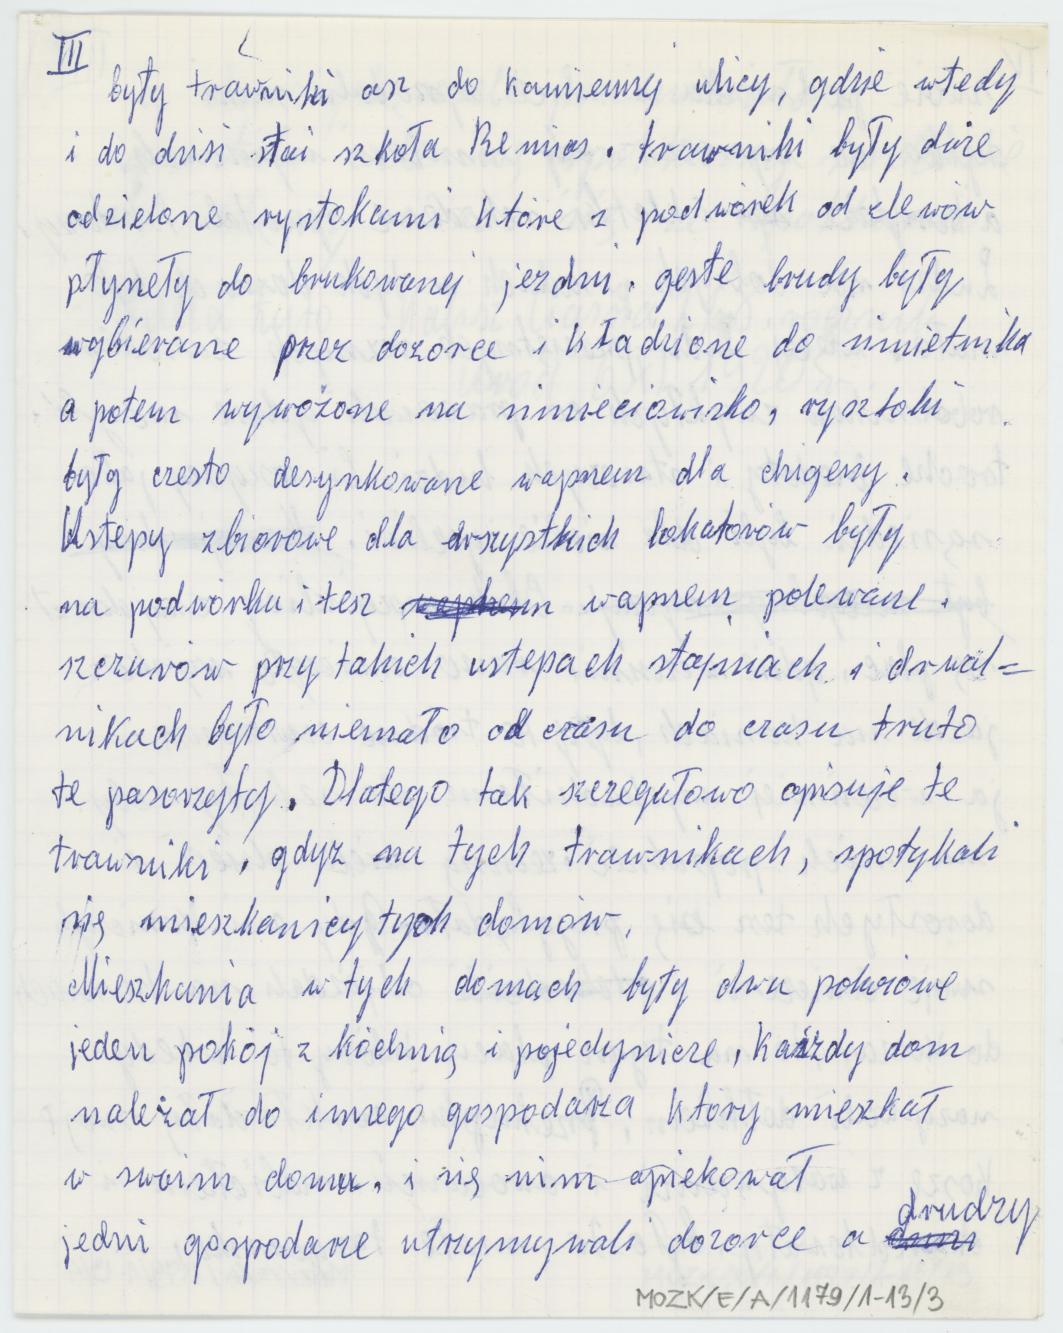 III
były trawniki asz do kamiennej ulicy, gdzie wtedy
i do dzisi stai szkoła Remios. trawniki były dóże
odzielone rystokami które z podwórek od zlewów
płyneły do brukowanej jezdni. geste brudy były
wybierane przez dozorce i kładzione do śmietnika
a potem wywożone na śmieciowisko, rysztoki
były czesto desynkowane wapnem dla chigeny.
Ustepy zbiorowe dla wszystkich lokatorów były
na podwórku i tesz wapnem polewane.
szczurów przy takich ustepach stajniach i drwal=
nikach było niemało od czasu do czasu truto
te pasorzyty. Dlatego tak szeregułowo opisuje te
trawniki, gdyż na tych trawnikach, spotykali
się mieszkanicy tych domów.
Mieszkania w tych domach były dwu pokojowe
jeden pokój z kóchnią i pojedyńcze, każdy dom
należał do innego gospodarza który mieszkał
w swoim domu, i się nim opiekował
jedni gospodarze utrzymywali dozorce a drudzy
MOZK/E/A/1179/1-13/3